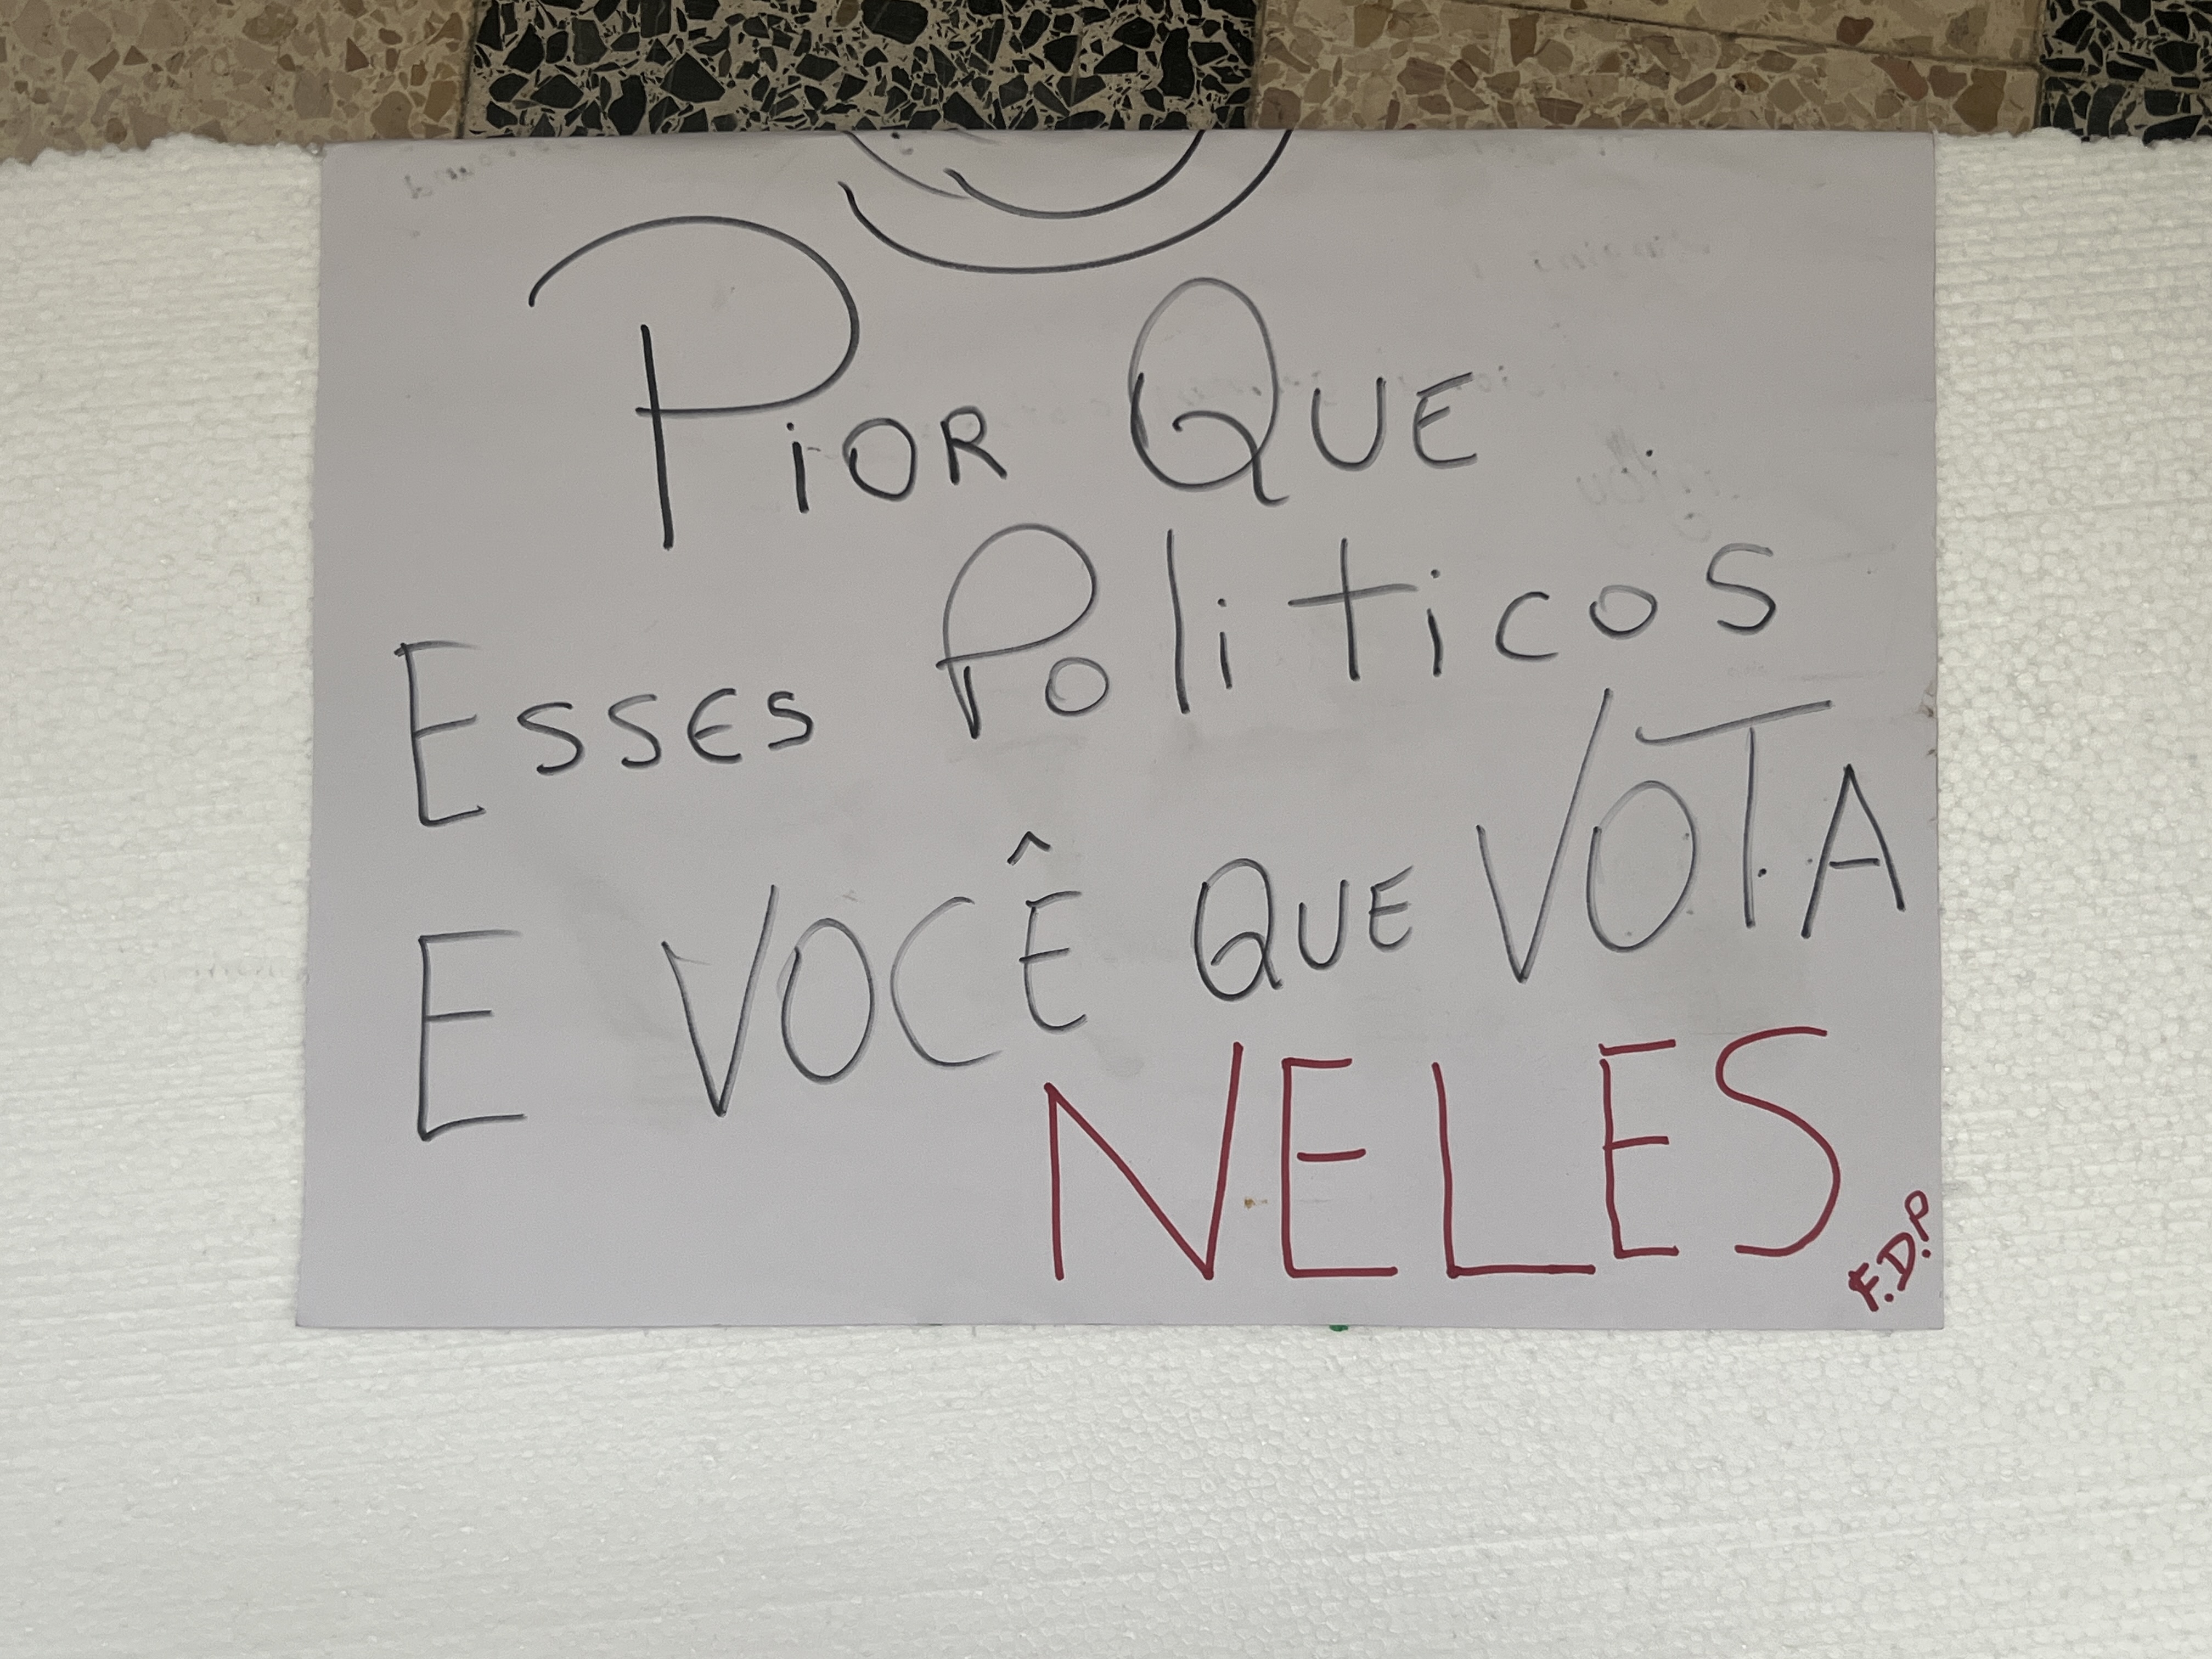 PiOR QUE
ESSES PoliticoS
E VOCÊ QUE VOTA
NELES
F.D.P